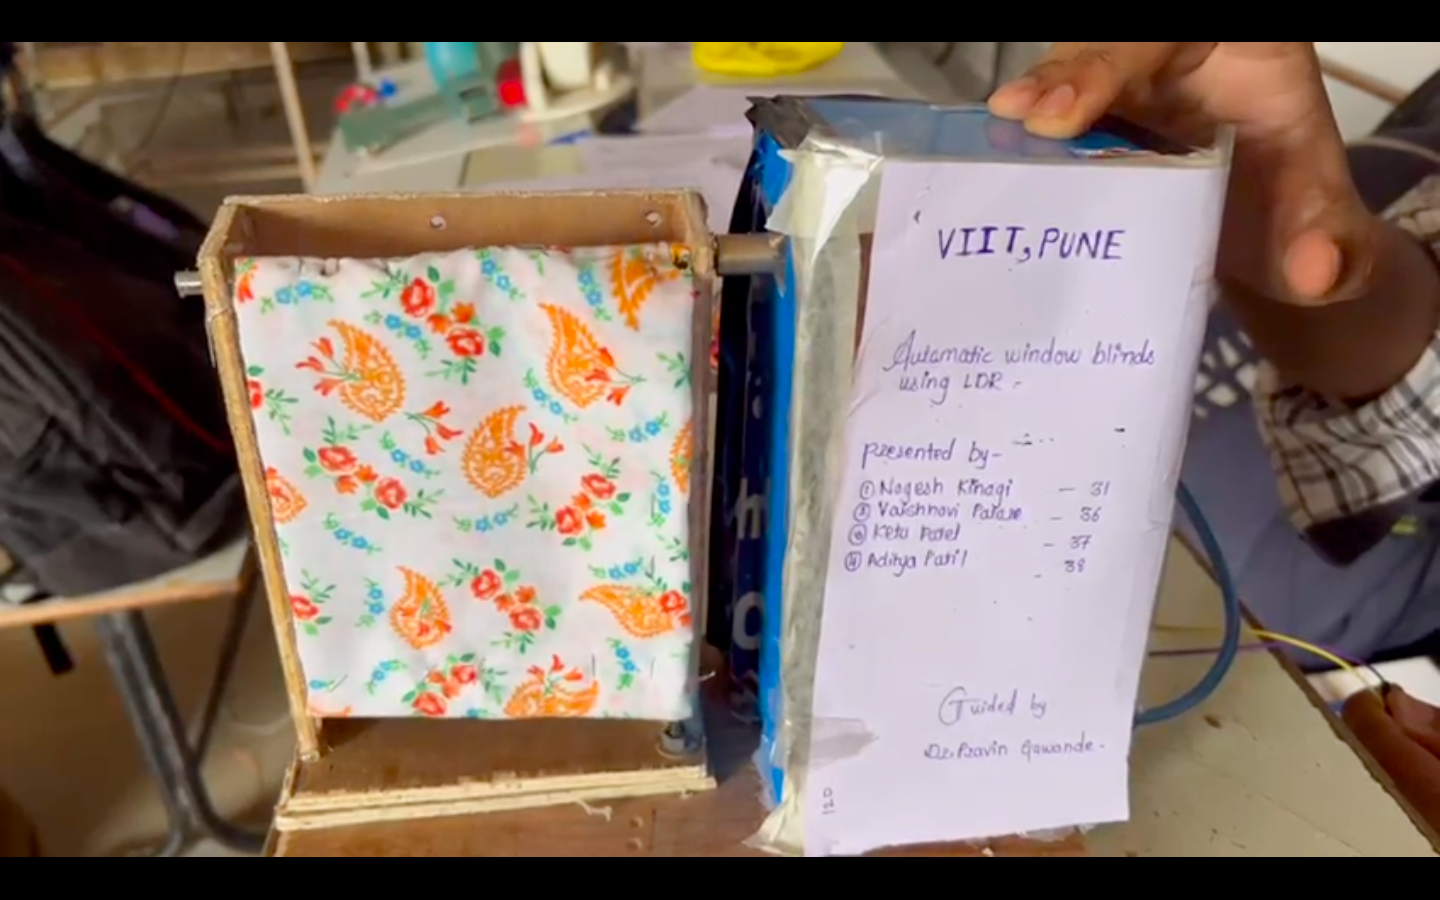 VIIT, PUNE
Automatic window blinds
using LDR -
Presented by-
① Nagesh Kinagi — 31
② Vaishnavi Parase — 36
③ Ketu Patel — 37
④ Aditya Patil - 38
Guided by
Dr. Pravin Gawande.